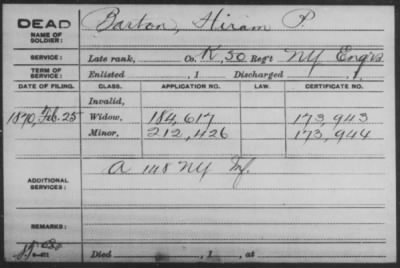 DEAD
NAME OF SOLDIER:
Barton, Hiram P.
SERVICE: Late rank, Co. K, 50 Reg't NY Eng'rs
TERM OF SERVICE: Enlisted , 1 Discharged , 1
DATE OF FILING. CLASS. APPLICATION NO. LAW. CERTIFICATE NO.
Invalid,
1870, Feb. 25 Widow, 184,617 173,943
Minor, 212,426 173,944
ADDITIONAL SERVICES:
A 148 NY Inf.
REMARKS:
Died , 1 , at